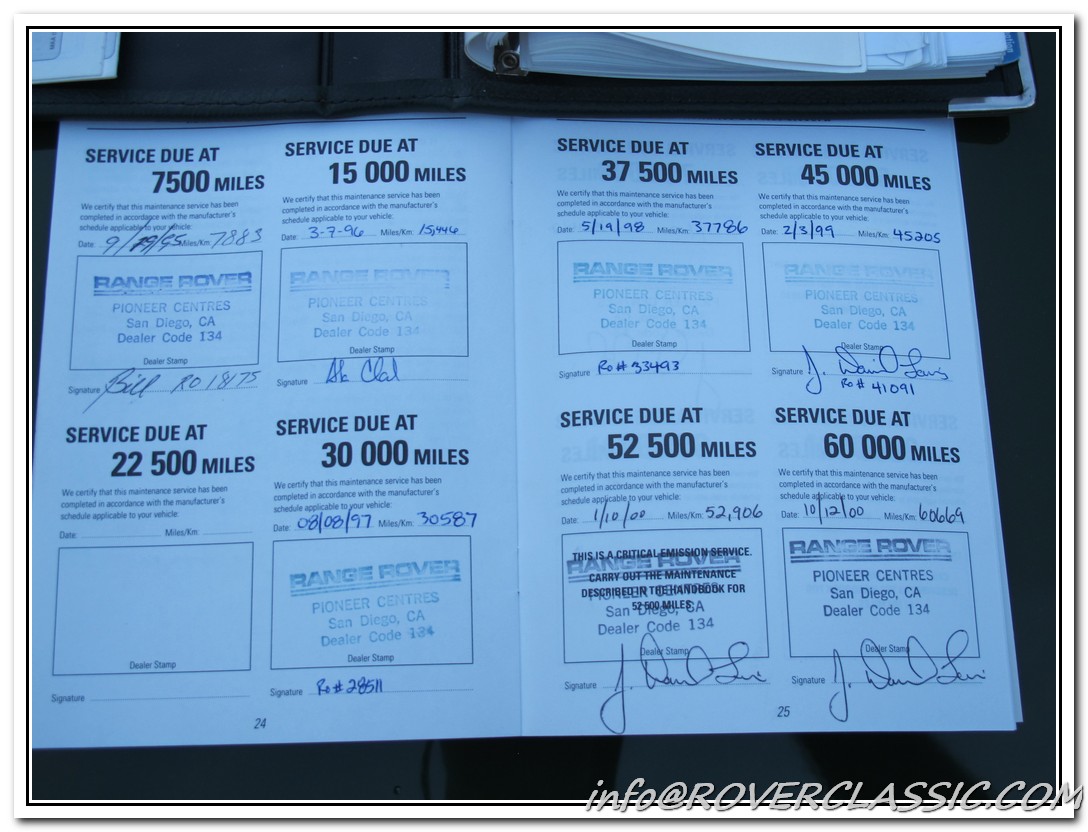 SERVICE DUE AT
7500 MILES
We certify that this maintenance service has been
completed in accordance with the manufacturer's
schedule applicable to your vehicle:
Date: 9/29/95 Miles/Km: 7883
RANGE ROVER
PIONEER CENTRES
San Diego, CA
Dealer Code 134
Dealer Stamp
Signature Bill RO 18175
SERVICE DUE AT
15 000 MILES
We certify that this maintenance service has been
completed in accordance with the manufacturer's
schedule applicable to your vehicle:
Date: 3-7-96 Miles/Km: 15,446
RANGE ROVER
PIONEER CENTRES
San Diego, CA
Dealer Code 134
Dealer Stamp
Signature
SERVICE DUE AT
22 500 MILES
We certify that this maintenance service has been
completed in accordance with the manufacturer's
schedule applicable to your vehicle:
Date: Miles/Km:
Dealer Stamp
Signature
SERVICE DUE AT
30 000 MILES
We certify that this maintenance service has been
completed in accordance with the manufacturer's
schedule applicable to your vehicle:
Date: 08/08/97 Miles/Km: 30587
RANGE ROVER
PIONEER CENTRES
San Diego, CA
Dealer Code 134
Dealer Stamp
Signature Ro# 28511
24
SERVICE DUE AT
37 500 MILES
We certify that this maintenance service has been
completed in accordance with the manufacturer's
schedule applicable to your vehicle:
Date: 5/19/98 Miles/Km: 37786
RANGE ROVER
PIONEER CENTRES
San Diego, CA
Dealer Code 134
Dealer Stamp
Signature Ro# 33493
SERVICE DUE AT
45 000 MILES
We certify that this maintenance service has been
completed in accordance with the manufacturer's
schedule applicable to your vehicle:
Date: 2/3/99 Miles/Km: 45205
RANGE ROVER
PIONEER CENTRES
San Diego, CA
Dealer Code 134
Dealer Stamp
Signature J. David
Ro# 41091
SERVICE DUE AT
52 500 MILES
We certify that this maintenance service has been
completed in accordance with the manufacturer's
schedule applicable to your vehicle:
Date: 1/10/00 Miles/Km: 52,906
THIS IS A CRITICAL EMISSION SERVICE.
RANGE ROVER
CARRY OUT THE MAINTENANCE
DESCRIBED IN THE HANDBOOK FOR
PIONEER CENTRES
52 500 MILES
San Diego, CA
Dealer Code 134
Dealer Stamp
Signature J. David
SERVICE DUE AT
60 000 MILES
We certify that this maintenance service has been
completed in accordance with the manufacturer's
schedule applicable to your vehicle:
Date: 10/12/00 Miles/Km: 60669
RANGE ROVER
PIONEER CENTRES
San Diego, CA
Dealer Code 134
Dealer Stamp
Signature J. David
25
info@ROVERCLASSIC.COM